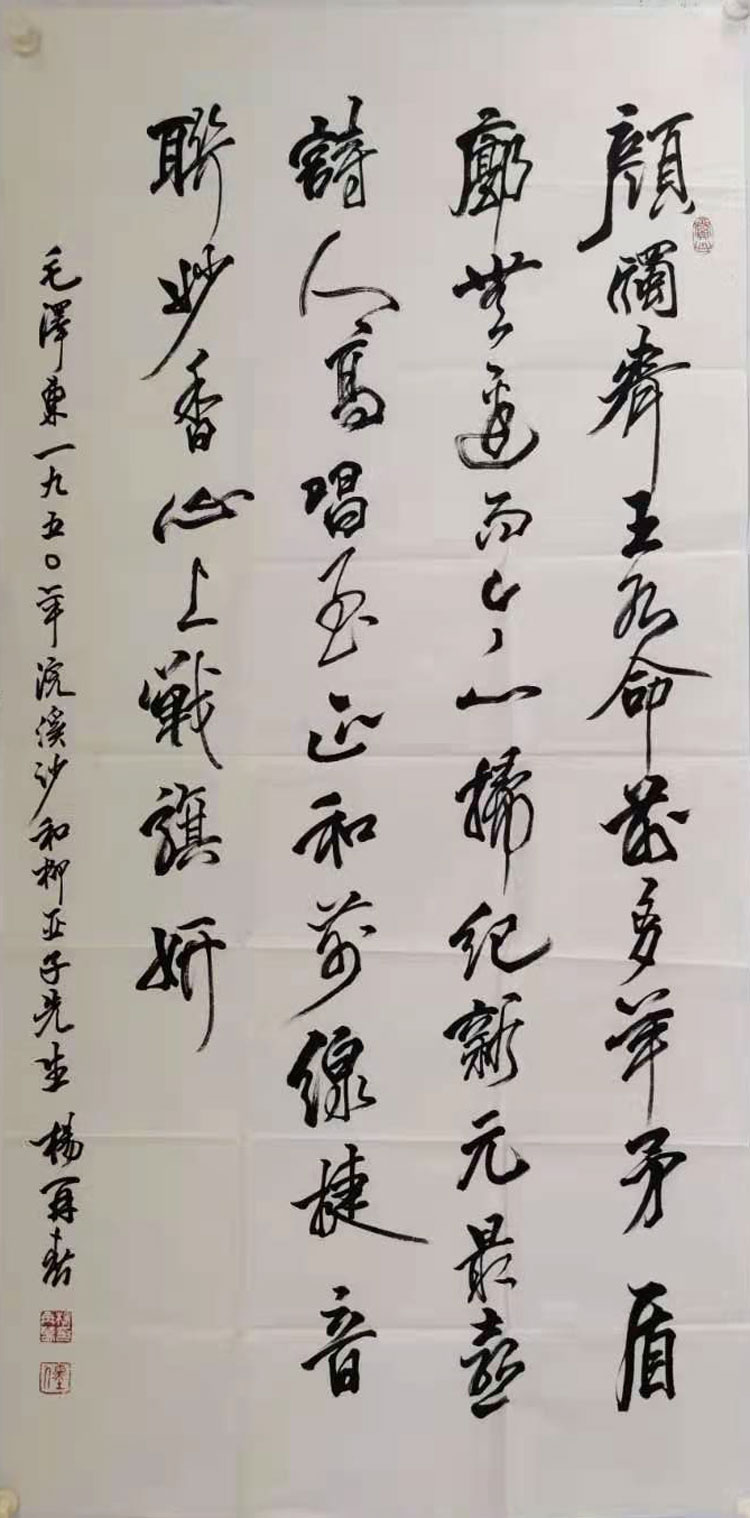 顔斶齊王各命前多年矛盾
廓無邊而今一掃紀新元最喜
詩人高唱至正和前線捷音
聯妙香山上戰旗妍
毛澤東一九五〇年浣溪沙和柳亞子先生 楊再春